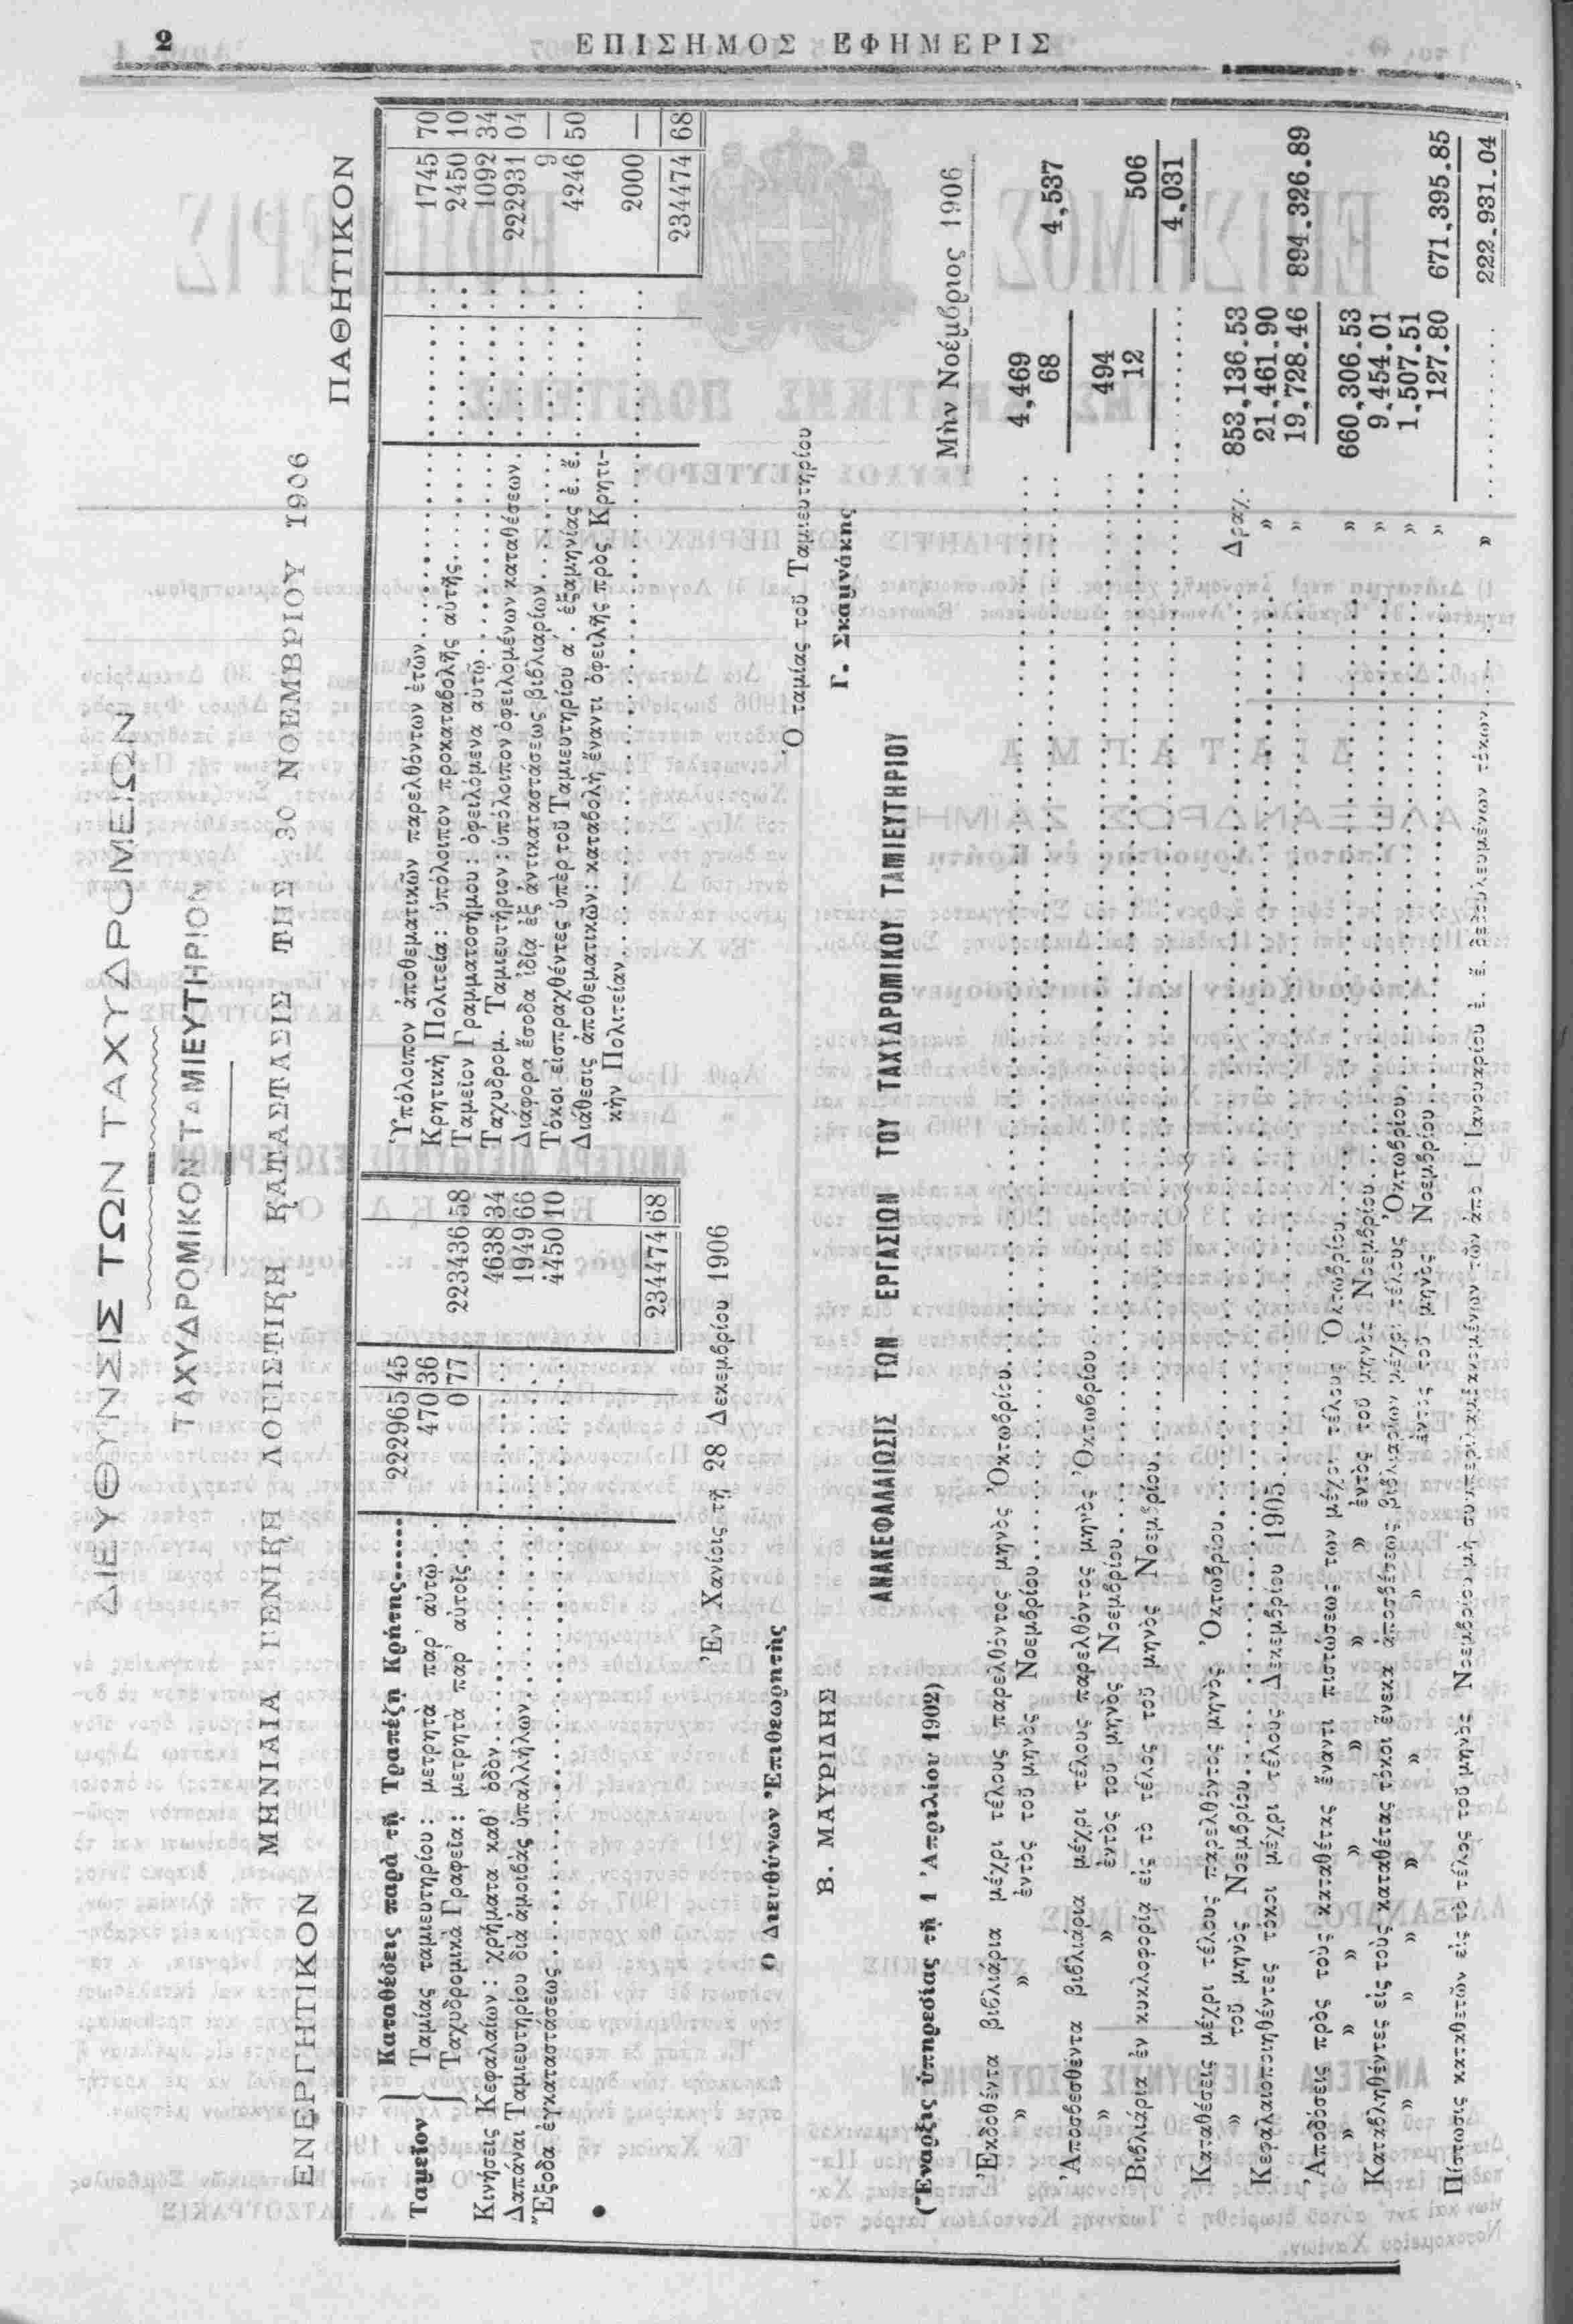 2
ΕΠΙΣΗΜΟΣ ΕΦΗΜΕΡΙΣ
ΔΙΕΥΘΥΝΣΙΣ ΤΩΝ ΤΑΧΥΔΡΟΜΕΙΩΝ
ΤΑΧΥΔΡΟΜΙΚΟΝ ΤΑΜΙΕΥΤΗΡΙΟΝ
ΜΗΝΙΑΙΑ ΓΕΝΙΚΗ ΛΟΓΙΣΤΙΚΗ ΚΑΤΑΣΤΑΣΙΣ ΤΗΣ 30 ΝΟΕΜΒΡΙΟΥ 1906
ΕΝΕΡΓΗΤΙΚΟΝ
Καταθέσεις παρὰ τῇ Τραπέζῃ Κρήτης...... 222965 45
Ταμεῖον { Ταμίας ταμιευτηρίου: μετρητὰ παρ' αὐτῷ.. 470 36
Ταχυδρομικὰ Γραφεῖα: μετρητὰ παρ' αὐτοῖς.. 0 77 223436 58
Κινήσεις Κεφαλαίων: χρήματα καθ' ὁδὸν.......... 4638 34
Δαπάναι Ταμιευτηρίου διὰ ἀμοιβὰς ὑπαλλήλων...... 1949 66
Ἔξοδα ἐγκαταστάσεως.......... 4450 10
234474 68
ΠΑΘΗΤΙΚΟΝ
Ὑπόλοιπον ἀποθεματικῶν παρελθόντων ἐτῶν.......... 1745 70
Κρητικὴ Πολιτεία: ὑπόλοιπον προκαταβολῆς αὐτῆς...... 2450 10
Ταμεῖον Γραμματοσήμου: ὀφειλόμενα αὐτῷ.......... 1092 34
Ταχυδρομ. Ταμιευτήριον: ὑπόλοιπον ὀφειλομένων καταθέσεων. 222931 04
Διάφορα ἔσοδα ἰδίᾳ ἐξ ἀντικαταστάσεως βιβλιαρίων...... 9 —
Τόκοι εἰσπραχθέντες ὑπὲρ τοῦ Ταμιευτηρίου α΄. ἑξαμηνίας ἐ. ἔ. 4246 50
Διάθεσις ἀποθεματικῶν: καταβολὴ ἔναντι ὀφειλῆς πρὸς Κρητι-
κὴν Πολιτείαν.......... 2000 —
234474 68
Ἐν Χανίοις τῇ 28 Δεκεμβρίου 1906
Ο Διευθύνων Ἐπιθεωρητὴς
Β. ΜΑΥΡΙΔΗΣ
Ὁ ταμίας τοῦ Ταμιευτηρίου
Γ. Σκαμνάκης
ΑΝΑΚΕΦΑΛΑΙΩΣΙΣ ΤΩΝ ΕΡΓΑΣΙΩΝ ΤΟΥ ΤΑΧΥΔΡΟΜΙΚΟΥ ΤΑΜΙΕΥΤΗΡΙΟΥ
(Ἔναρξις ὑπηρεσίας τῇ 1 Ἀπριλίου 1902)
Μὴν Νοέμβριος 1906
Ἐκδοθέντα βιβλιάρια μέχρι τέλους παρελθόντος μηνὸς Ὀκτωβρίου.......... 4,469
» » ἐντὸς τοῦ μηνὸς Νοεμβρίου.......... 68 4,537
Ἀποσβεσθέντα βιβλιάρια μέχρι τέλους παρελθόντος μηνὸς Ὀκτωβρίου.......... 494
» » ἐντὸς τοῦ μηνὸς Νοεμβρίου.......... 12 506
Βιβλιάρια ἐν κυκλοφορίᾳ εἰς τὸ τέλος τοῦ μηνὸς Νοεμβρίου.......... 4,031
Καταθέσεις μέχρι τέλους παρελθόντος μηνὸς Ὀκτωβρίου.......... Δραχ. 853,136.53
» τοῦ μηνὸς Νοεμβρίου.......... » 21.461.90
Κεφαλαιοποιηθέντες τόκοι μέχρι τέλους Δεκεμβρίου 1905.......... » 19,728.46 894,326.89
Ἀποδόσεις πρὸς τοὺς καταθέτας ἔναντι πιστώσεως των μέχρι τέλους Ὀκτωβρίου.......... » 660,306.53
» » » » » » ἐντὸς τοῦ μηνὸς Νοεμβρίου.......... » 9,454.01
Καταβληθέντες εἰς τοὺς καταθέτας τόκοι ἕνεκα ἀποσβέσεως βιβλιαρίων μέχρι τέλους Ὀκτωβρίου.......... » 1,507.51
» » » » » » ἐντὸς τοῦ μηνὸς Νοεμβρίου.......... » 127.80 671,395.85
Πίστωσις καταθετῶν εἰς τὸ τέλος τοῦ μηνὸς Νοεμβρίου μὴ συμπεριλαμβανομένων τῶν ἀπὸ 1 Ἰανουαρίου ἐ. ἔ. δεδουλευμένων τόκων.... » 222.931.04